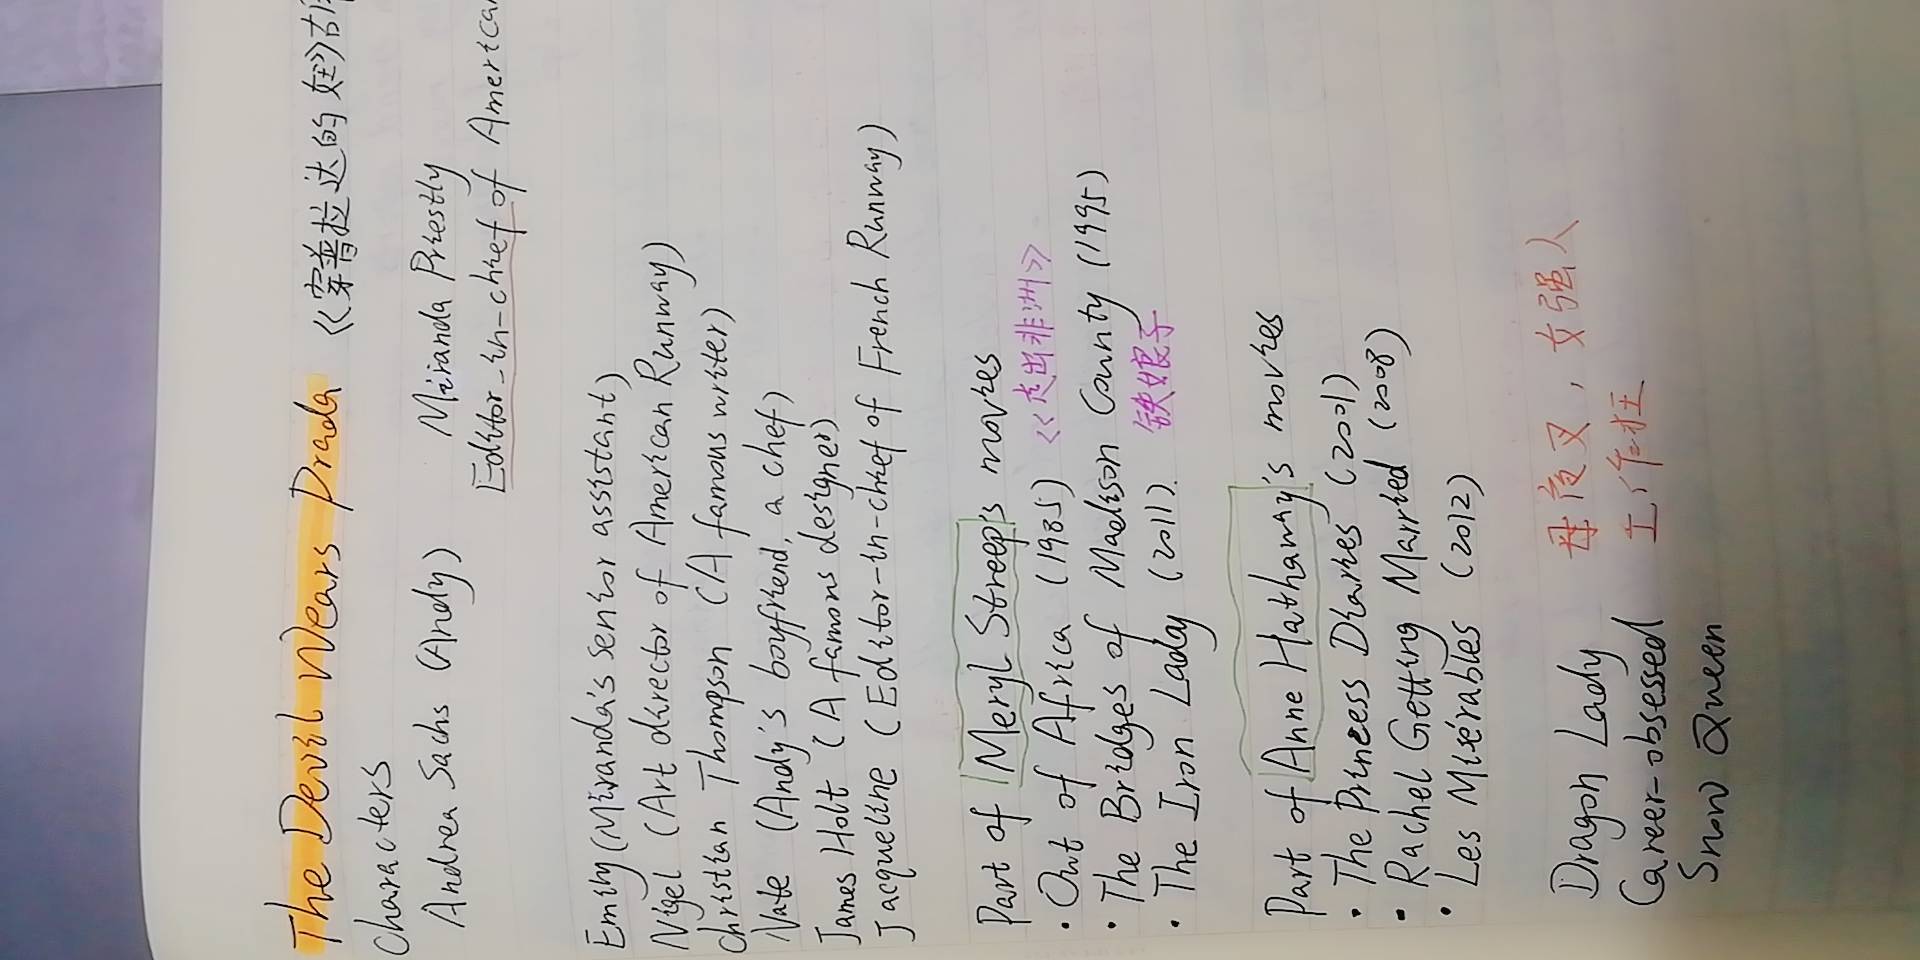 The Devil Wears Prada 《穿普拉达的女王》
Characters
Andrea Sachs (Andy) Miranda Priestly
Editor-in-chief of American
Emily (Miranda's senior assistant)
Nigel (Art director of American Runway)
Christian Thompson (A famous writer)
Nate (Andy's boyfriend, a chef)
James Holt (A famous designer)
Jacqueline (Editor-in-chief of French Runway)
Part of Meryl Streep's movies
• Out of Africa (1985) 《走出非洲》
• The Bridges of Madison County (1995)
• The Iron Lady (2011). 铁娘子
Part of Anne Hathaway's movies
• The Princess Diaries (2001)
• Rachel Getting Married (2008)
• Les Misérables (2012)
Dragon Lady 母夜叉，女强人
Career-obsessed 工作狂
Snow Queen